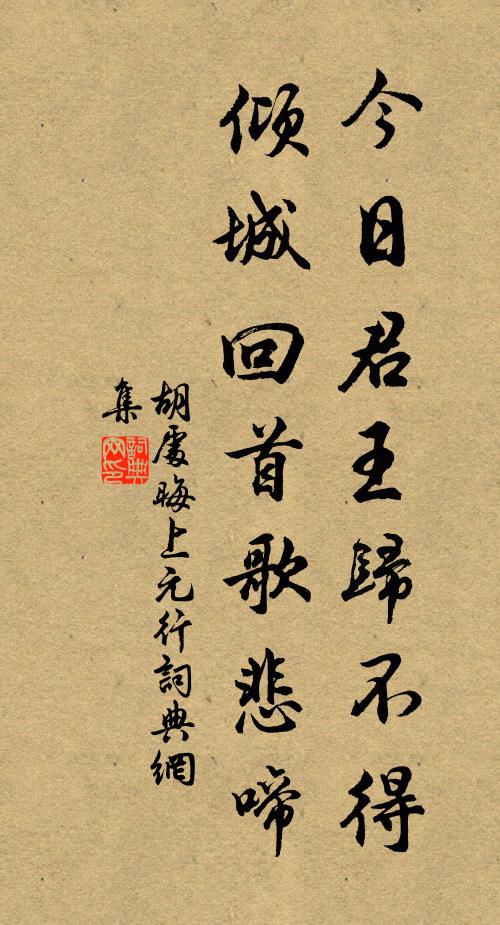 今日君王歸不得
傾城回首歌悲啼
胡處晦上元行詞典網
集
詞典
网印